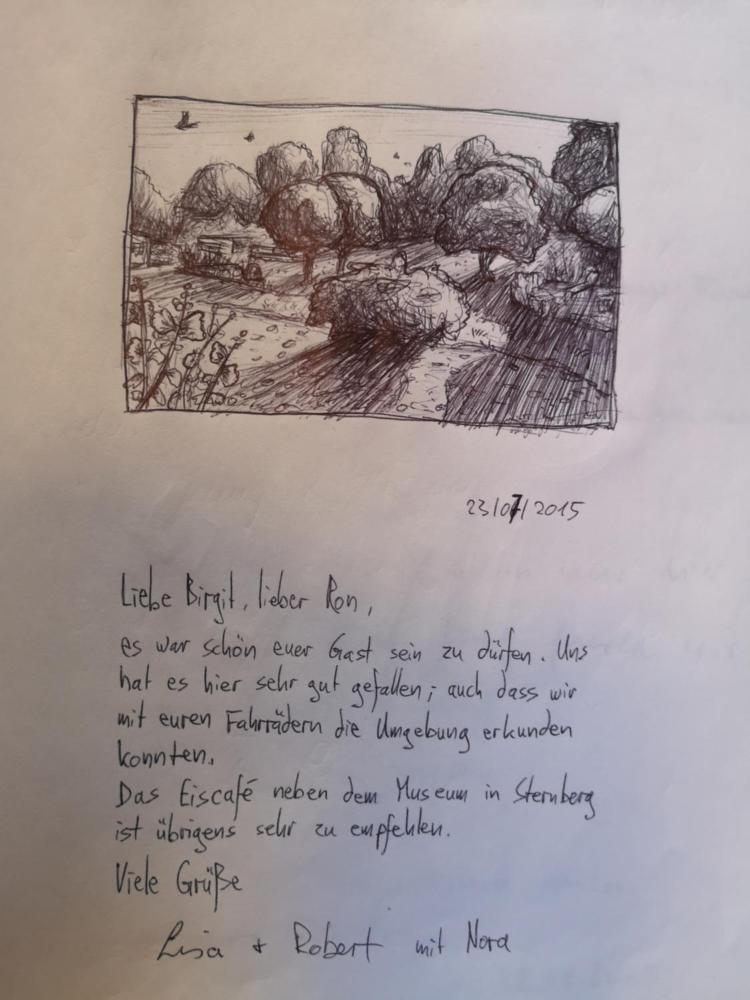 23/07/2015
Liebe Birgit, lieber Ron,
es war schön euer Gast sein zu dürfen. Uns
hat es hier sehr gut gefallen; auch dass wir
mit euren Fahrrädern die Umgebung erkunden
konnten.
Das Eiscafé neben dem Museum in Sternberg
ist übrigens sehr zu empfehlen.
Viele Grüße
Lisa + Robert mit Nora